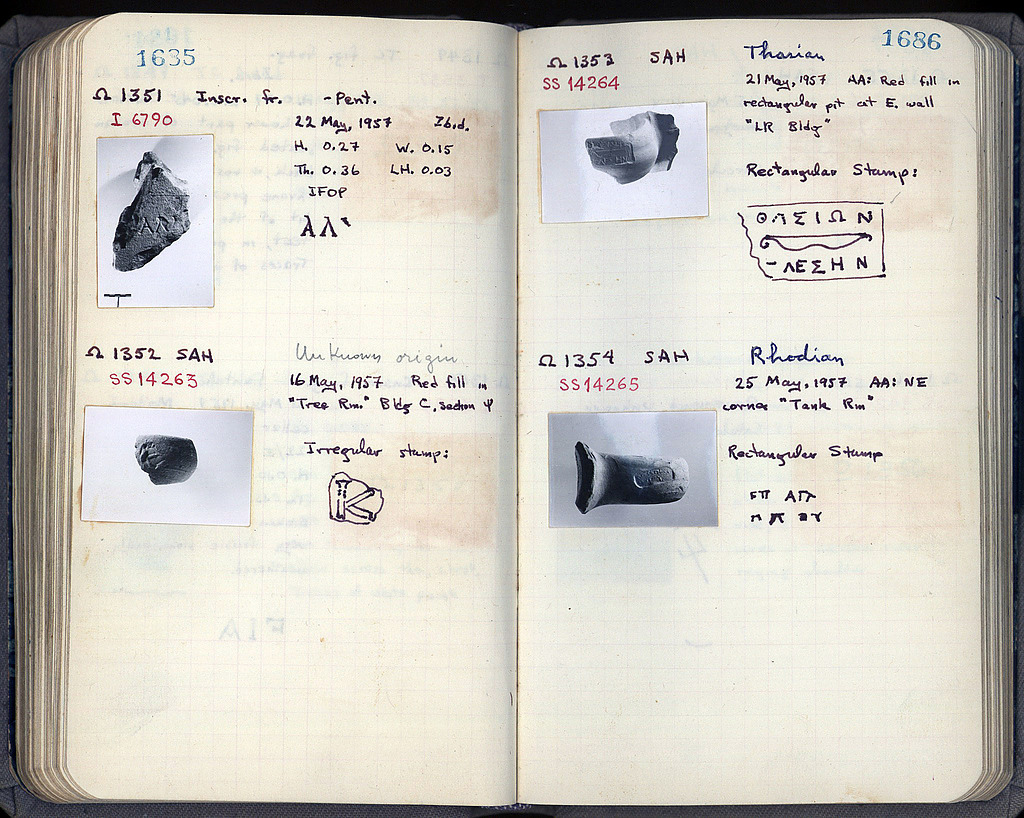 1635
Ω 1351 Inscr. fr. - Pent.
I 6790
22 May, 1957 Ibid.
H. 0.27 W. 0.15
Th. 0.36 LH. 0.03
IFOP
ΑΛ
Ω 1352 SAH Unknown origin
SS 14263
16 May, 1957 Red fill in
"Tree Rm." Bldg C, section Ψ
Irregular stamp:
1686
Ω 1353 SAH Thasian
SS 14264
21 May, 1957 AA: Red fill in
rectangular pit at E. wall
"LR Bldg"
Rectangular Stamp:
ΘΑΣΙΩΝ
-ΛΕΣΗΝ
Ω 1354 SAH Rhodian
SS 14265
25 May, 1957 AA: NE
corner "Tank Rm"
Rectangular Stamp